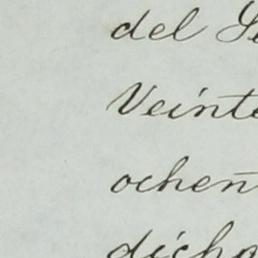 del Se
Veinte
ochen
dicho